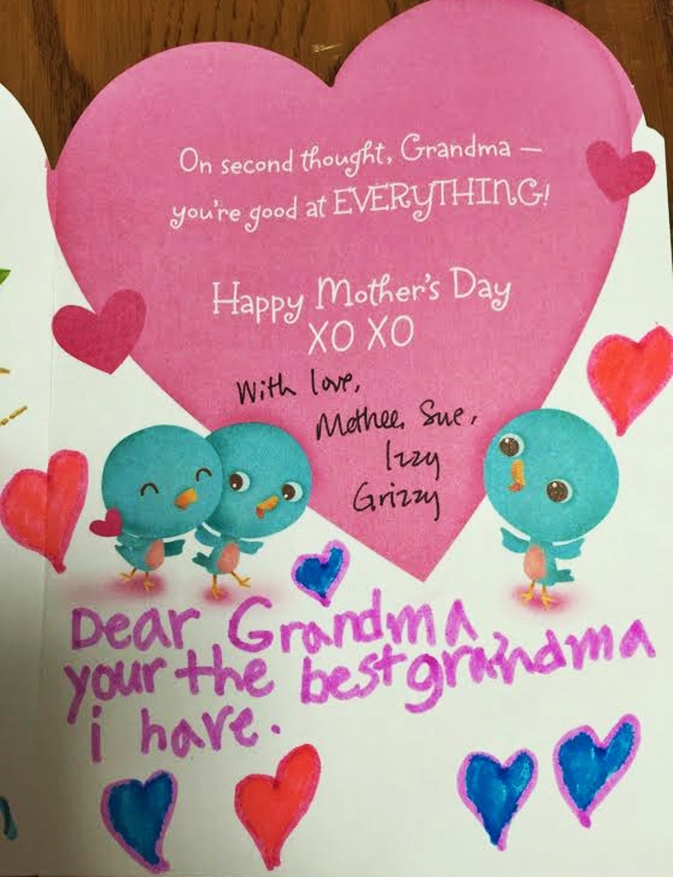 On second thought, Grandma —
you're good at EVERYTHING!
Happy Mother's Day
XO XO
With love,
Mothee, Sue,
Izzy
Grizzy
Dear Grandma
your the best grandma
i have.